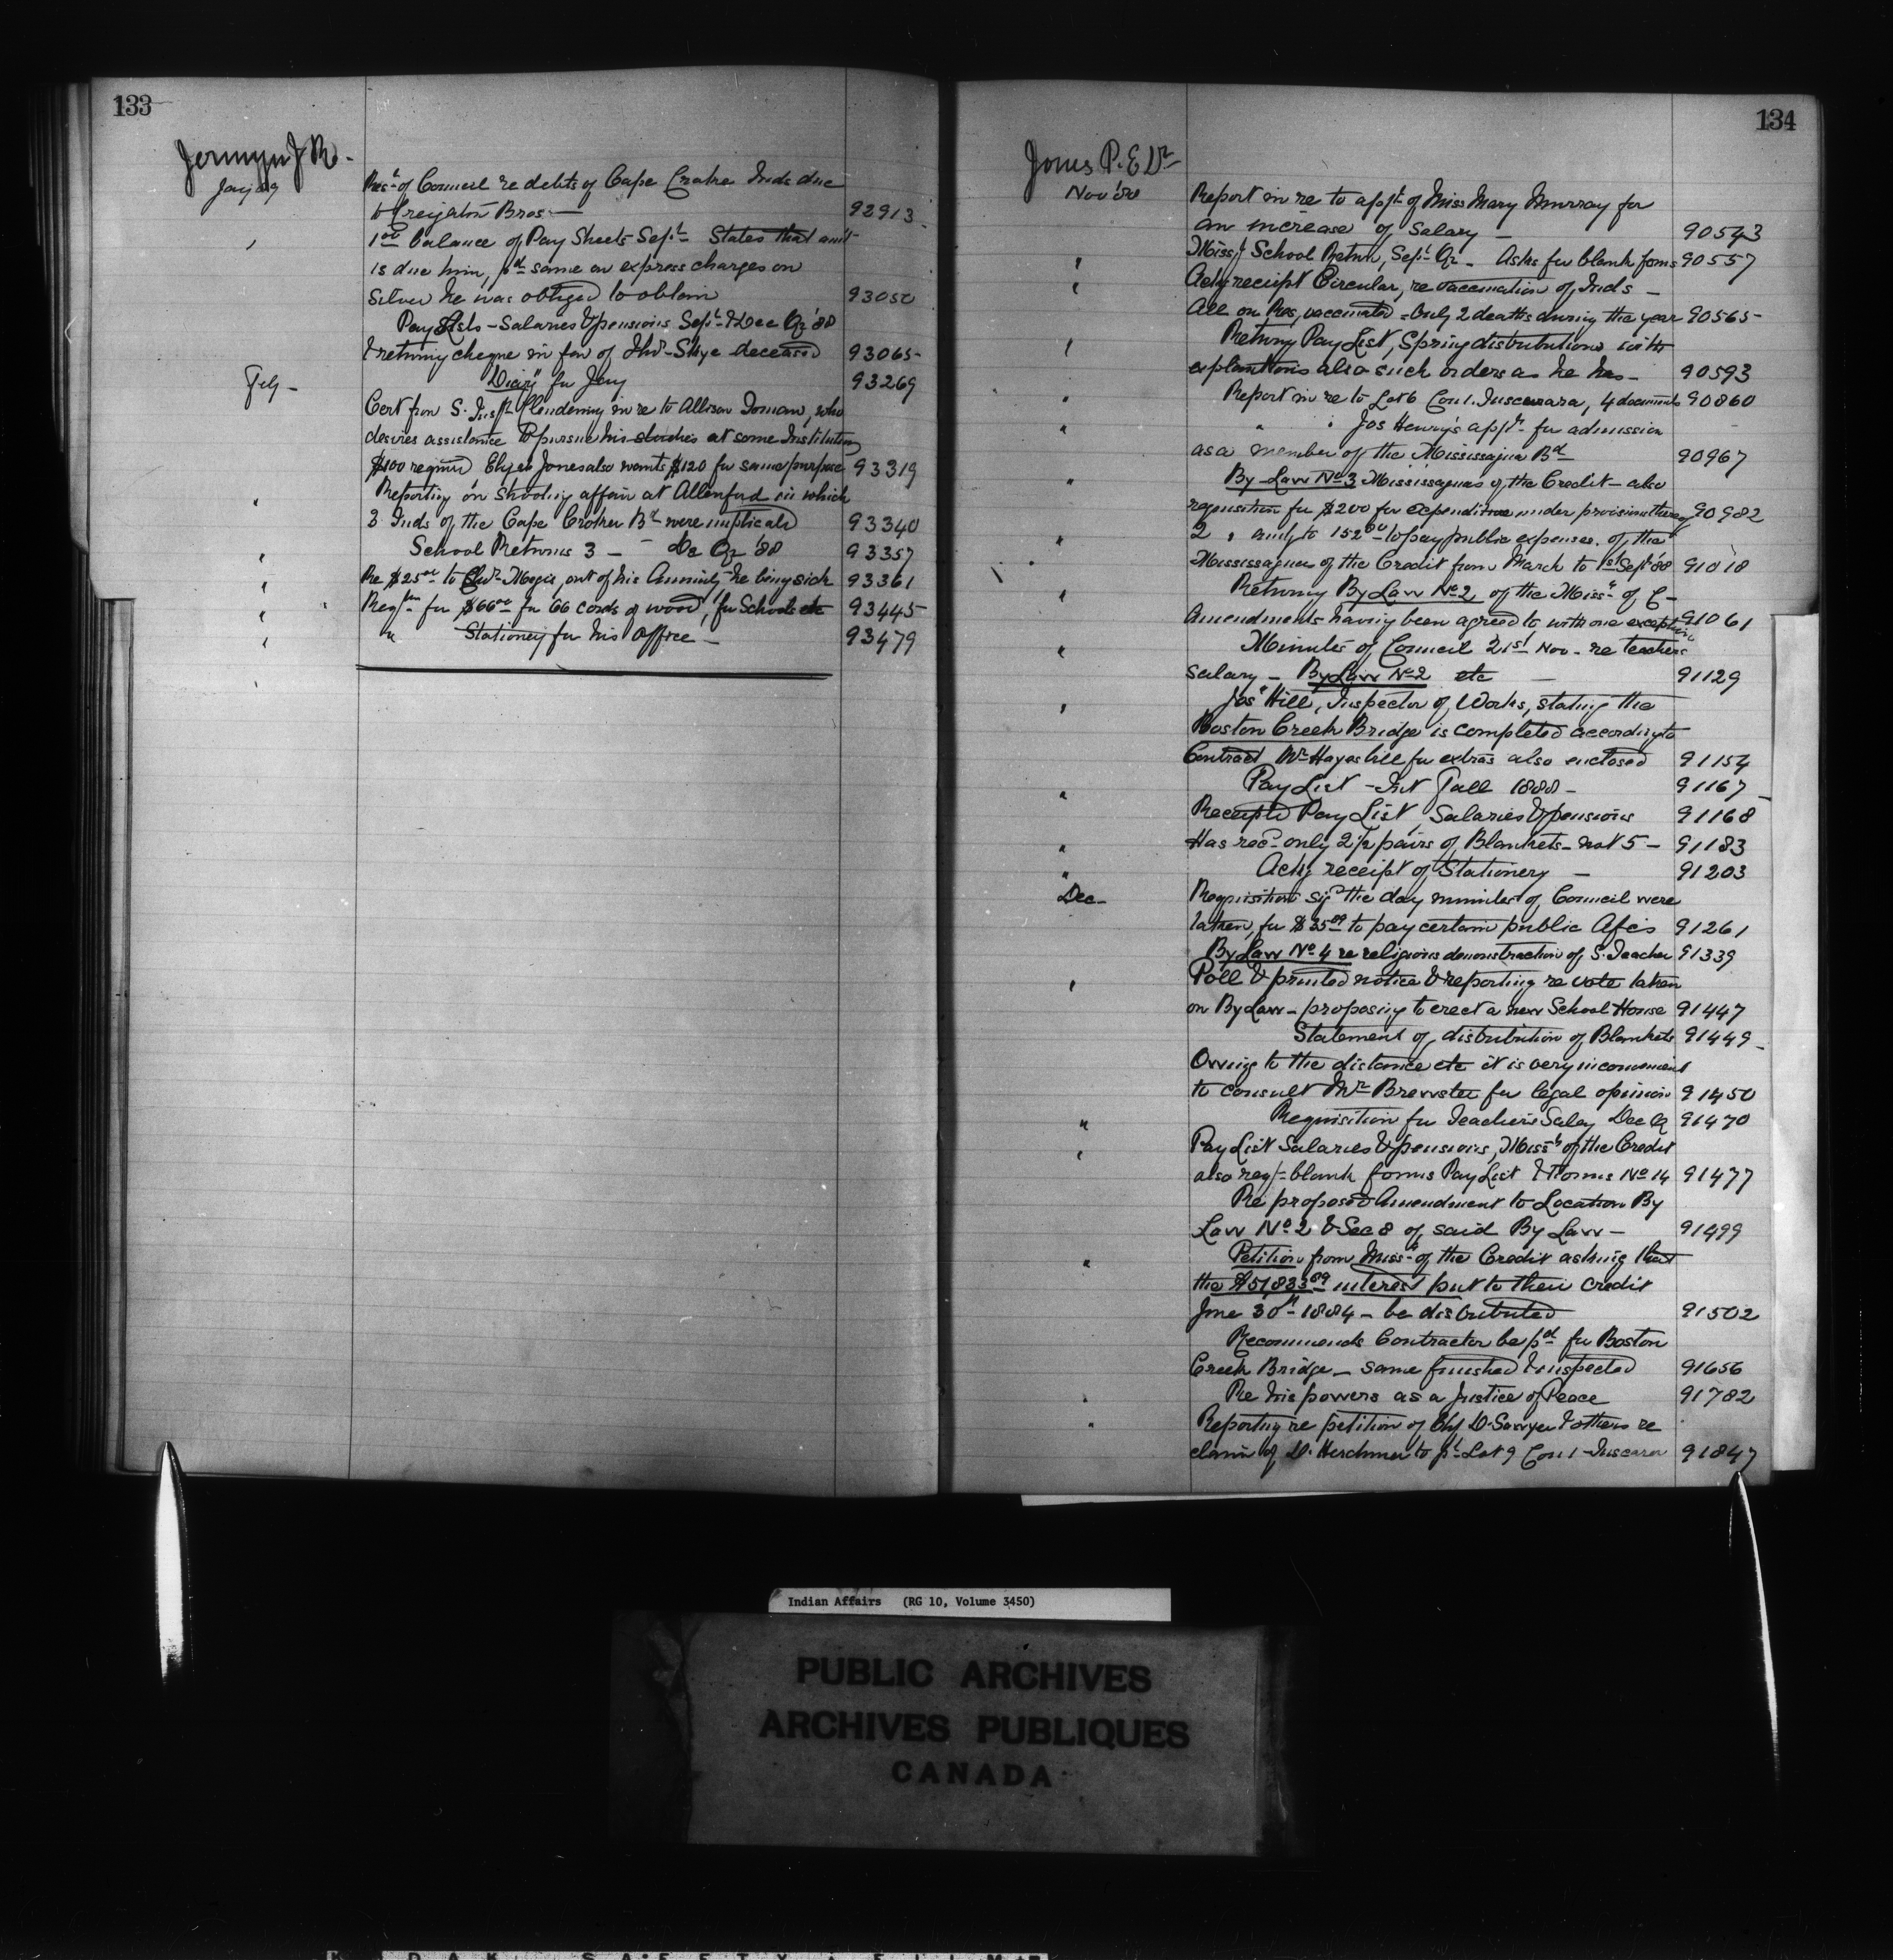 133
Jermyn J. W.
Jany 89
Resn of Council re debts of Cape Croker Inds due
to Creighton Bros. — 92913
1.00 balance of Pay Sheets Sept. States that amt
is due him, pd same on express charges on
silver he was obliged to obtain 93050
Pay Lists - Salaries & pensions Sept. & Dec Qr '88
& returning cheque in fav of Thos Skye deceased 93065
Feby - "Diary" for Jany 93269
Cert from S. Inspr Clendening in re to Allison, who
desires assistance to pursue his studies at some Institution
$100 required Elijah Jones also wants $120 for same purpose 93319
" Reporting on shooting affair at Allenford in which
3 Inds of the Cape Croker Bd were implicated 93340
" School Returns 3 — Dec Qr '88 93357
" Re $25.00 to out of his Annuity he being sick 93361
" Reqtn for $66.00 for 66 cords of wood, for Schools etc 93445
" " Stationery for his office — 93479
134
Jones P. E. Dr
Nov '88
Report in re to applt of Miss Mary Murray for
an increase of Salary — 90543
" Missg School Return, Sept. Qr - Asks for blank forms 90557
" Ackg receipt Circular, re vaccination of Inds —
All on Res, vaccinated - Only 2 deaths during the year 90565
" Returng Pay List, Spring distributions with
explanations also such orders as he has - 90593
" Report in re to Lot 6 Con 1. Tuscarora, 4 documents 90860
" " " Jos Henry's appltn for admission
as a member of the Mississagua Bd 90967
" By-Law No 3 Mississaguas of the Credit - also
requisition for $200 for expenditure under provision thereof 90982
" 2 " amtg to 152.00 to pay public expenses of the
Mississaguas of the Credit from March to 1st Sept '88 91018
" Returng By Law No 2 of the Miss.s of C -
Amendments having been agreed to with one exception 91061
" Minutes of Council 21st Nov - re teachers
salary - By Law No 2 etc — 91129
" Jos Hill, Inspector of Works, stating the
Boston Creek Bridge is completed according to
Contract Mr Hayes bill for extras also enclosed 91154
" Pay List - Int Fall 1888 - 91167
Receipted Pay List, Salaries & pensions 91168
" Has recd only 2½ pairs of Blankets - not 5 - 91183
" Ackg receipt of Stationery — 91203
Dec - Requisition sigd the day minutes of Council were
taken, for $35.09 to pay certain public A/cs 91261
By Law No 4 re religious demonstration of S. Teacher 91339
" Poll & printed notice & reporting re vote taken
on By Law - proposing to erect a new School House 91447
Statement of distribution of Blankets 91449
Owing to the distance etc it is very inconvenient
to consult Mr Brewster for legal opinion 91450
" Requisition for Teachers Salary Dec Q 91470
" Pay List Salaries & pensions, Miss.s of the Credit
also reqg blank forms Pay List & Forms No 14 91477
Re proposed Amendment to Location By
Law No 2 & Sec 8 of said By Law — 91499
" Petition from Miss.s of the Credit asking that
the $51833.09 interest put to their credit
June 30th 1884 - be distributed 91502
Recommends Contractor be pd for Boston
Creek Bridge - same finished & inspected 91656
" Re his powers as a Justice of Peace 91782
" Reporting re petition of Chf D. Sawyer & others re
claim of D. Herchmer to pt Lot 9 Con 1 Tuscarora 91847
Indian Affairs (RG 10, Volume 3450)
PUBLIC ARCHIVES
ARCHIVES PUBLIQUES
CANADA